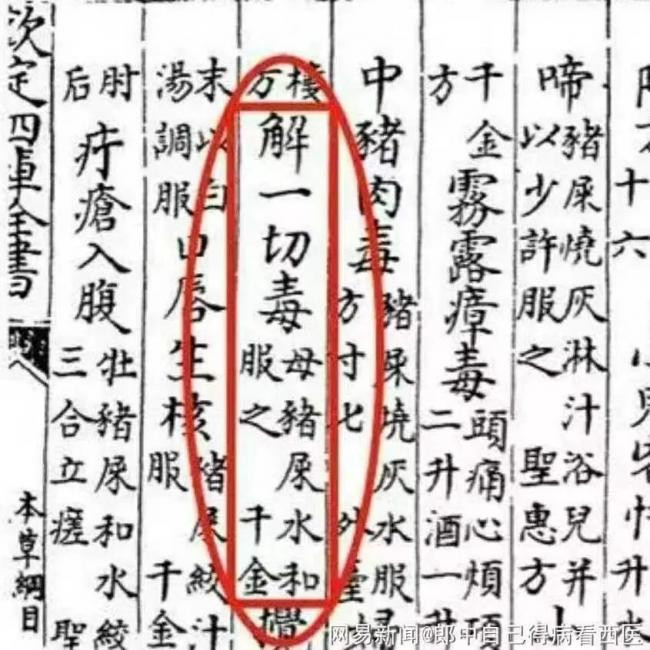 十六
啼豬屎燒灰淋汁浴兒并以少許服之 聖惠方 小
千金方 霧露瘴毒 頭痛心煩項二升酒一升
中豬肉毒 豬屎燒灰水服方寸匕 外臺
方 解一切毒 母豬屎水和服之 千金
末以白湯調服 口唇生核 豬屎絞汁服 千金
肘后 疔瘡入腹 牡豬屎和水絞三合立瘥 聖
欽定四庫全書
本草綱目
网易新闻@郎中自己得病看西医